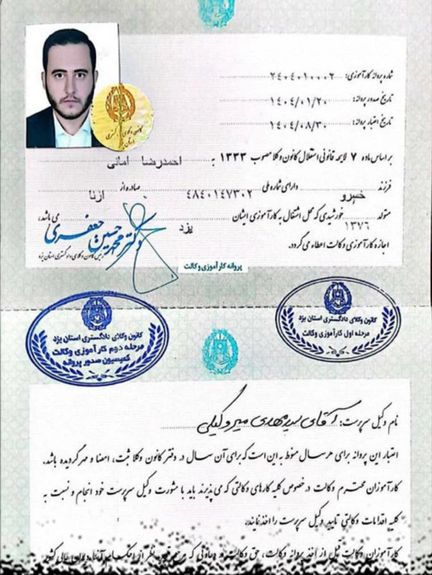 شماره پروانه کارآموزی: ۲۴۰۴۰۱۰۰۰۲
تاریخ صدور پروانه: ۱۴۰۴/۰۱/۲۰
تاریخ اعتبار پروانه: ۱۴۰۴/۰۸/۳۰
بر اساس ماده ۷ لایحه قانونی استقلال کانون وکلا مصوب ۱۳۳۳ به احمدرضا امانی
فرزند خسرو دارای شماره ملی ۴۸۴۰۱۴۷۳۰۲ صادره از ازنا
متولد ۱۳۷۶ خورشیدی که محل اشتغال به کارآموزی ایشان یزد می باشد،
اجازه کارآموزی وکالت اعطاء می گردد.
دکتر محمد حسین جعفری
رئیس کانون وکلای دادگستری استان یزد
پروانه کارآموزی وکالت
کانون وکلای دادگستری استان یزد
مرحله دوم کارآموزی وکالت
کمیسیون صدور پروانه
کانون وکلای دادگستری استان یزد
مرحله اول کارآموزی وکالت
نام وکیل سرپرست: آقای سید مهدی میروکیلی
اعتبار این پروانه برای هر سال منوط به این است که برای آن سال در دفتر کانون وکلا ثبت، امضا و مهر گردیده باشد.
کارآموزان محترم وکالت در خصوص کلیه کارهای وکالتی که می پذیرند باید با مشورت وکیل سرپرست خود انجام و نسبت به
کلیه اقدامات وکالتی تایید وکیل سرپرست را اخذ نمایند.
کارآموزان وکالت قبل از اخذ پروانه وکالت، حق وکالت در دعاوی که